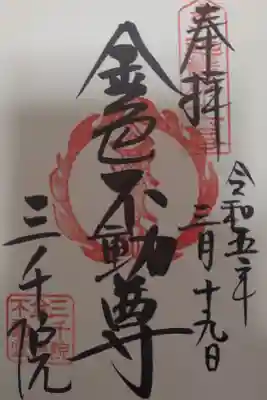 奉拝
令和五年
三月十九日
金色不動尊
三千院